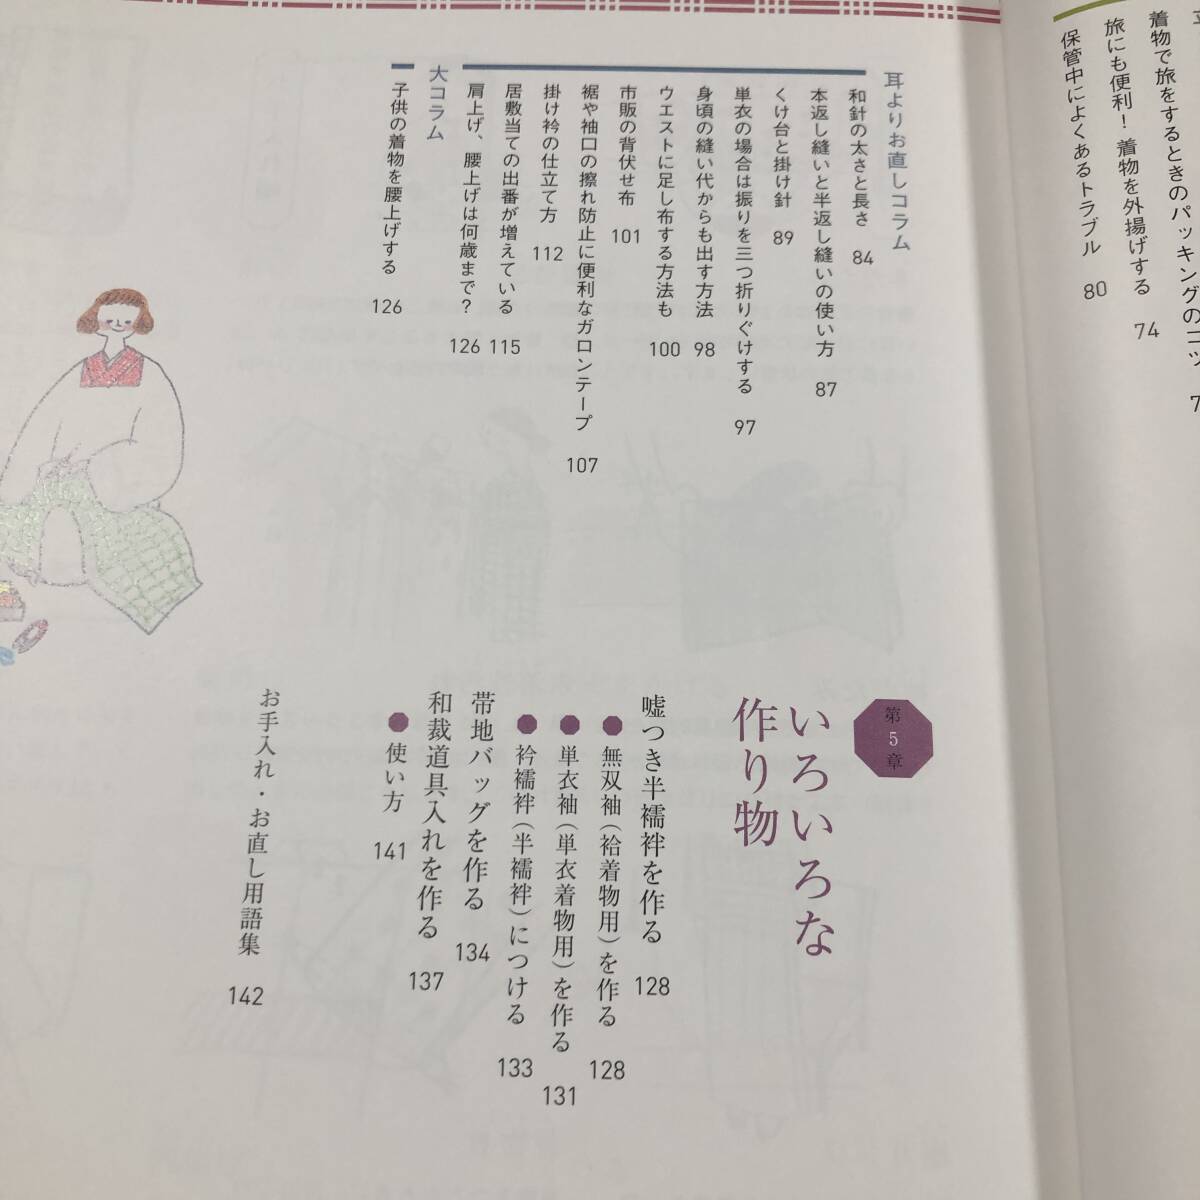 着物で旅をするときのパッキングのコツ
旅にも便利！ 着物を外揚げする 74
保管中によくあるトラブル 80
耳よりお直しコラム
和針の太さと長さ 84
本返し縫いと半返し縫いの使い方 87
くけ台と掛け針 89
単衣の場合は振りを三つ折りぐけする 97
身頃の縫い代からも出す方法 98
ウエストに足し布する方法も 100
市販の背伏せ布 101
裾や袖口の擦れ防止に便利なガロンテープ 107
掛け衿の仕立て方 112
居敷当ての出番が増えている 115
肩上げ、腰上げは何歳まで？ 126
大コラム
子供の着物を腰上げする 126
第5章
いろいろな
作り物
嘘つき半襦袢を作る 128
●無双袖（袷着物用）を作る 128
●単衣袖（単衣着物用）を作る 131
●衿襦袢（半襦袢）につける 133
帯地バッグを作る 134
和裁道具入れを作る 137
●使い方 141
お手入れ・お直し用語集 142